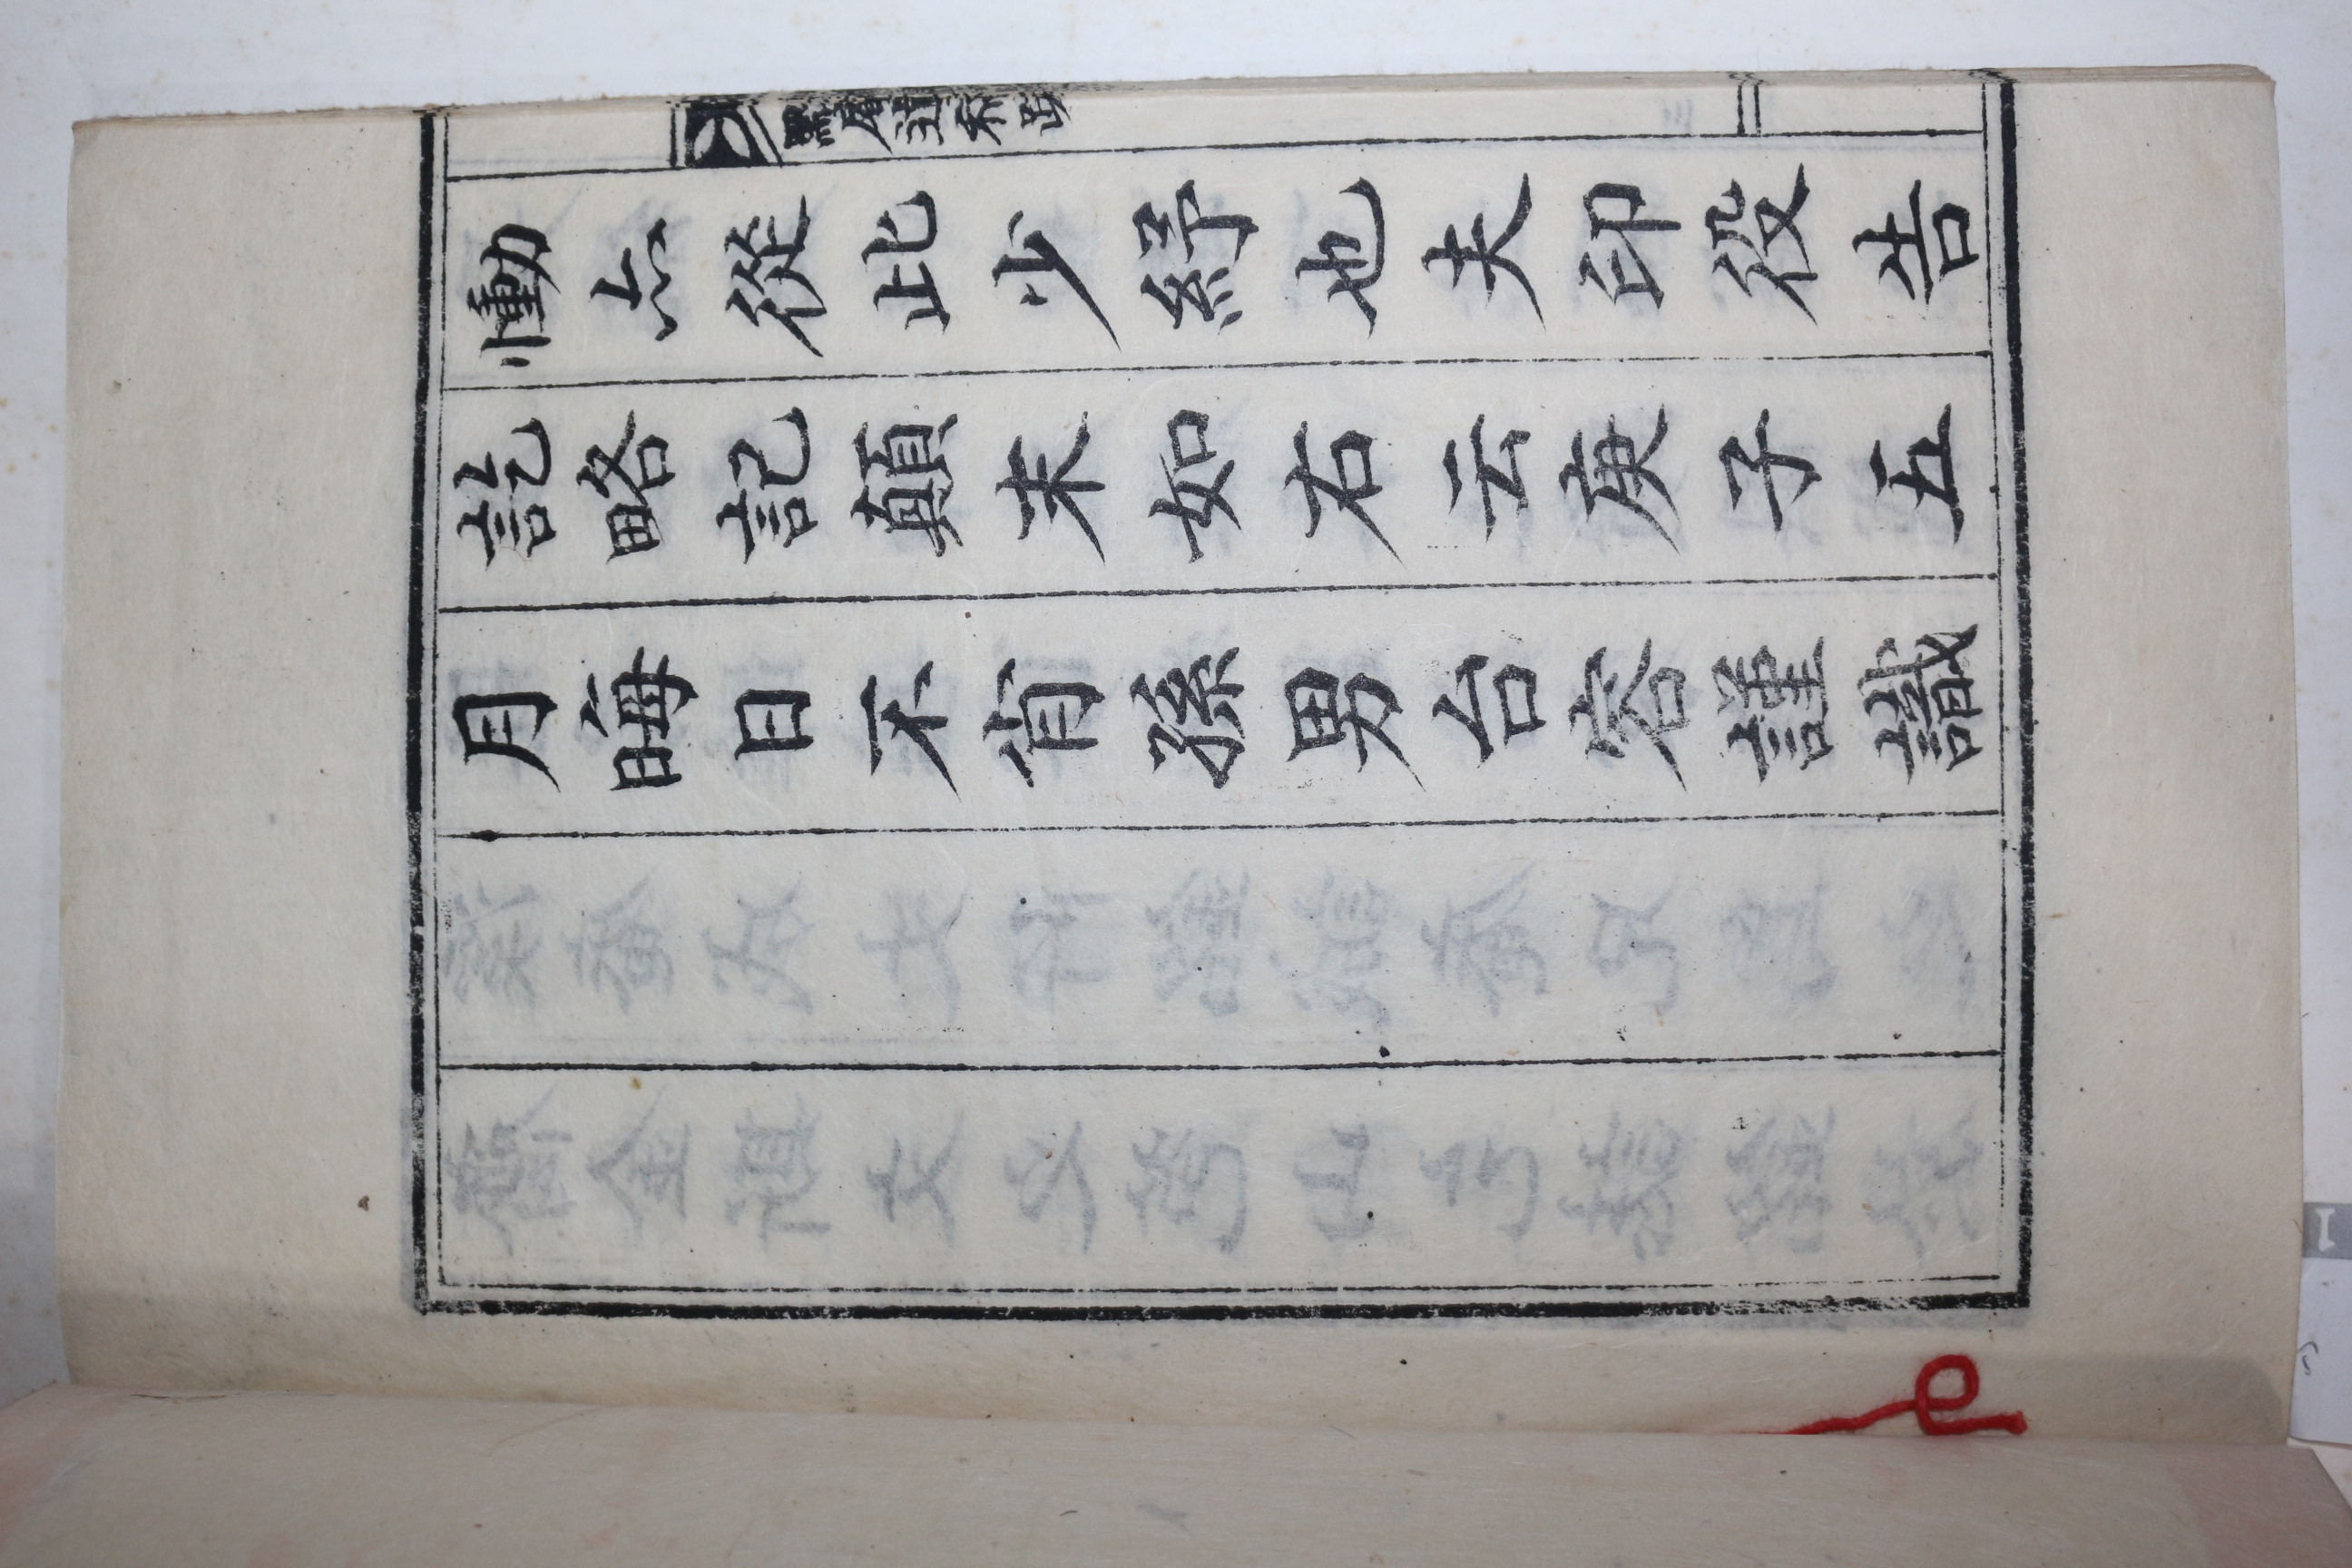 慟亦從此少紓也夫印役告
訖略記顛末如右云庚子五
月晦日不肖孫男台容謹識